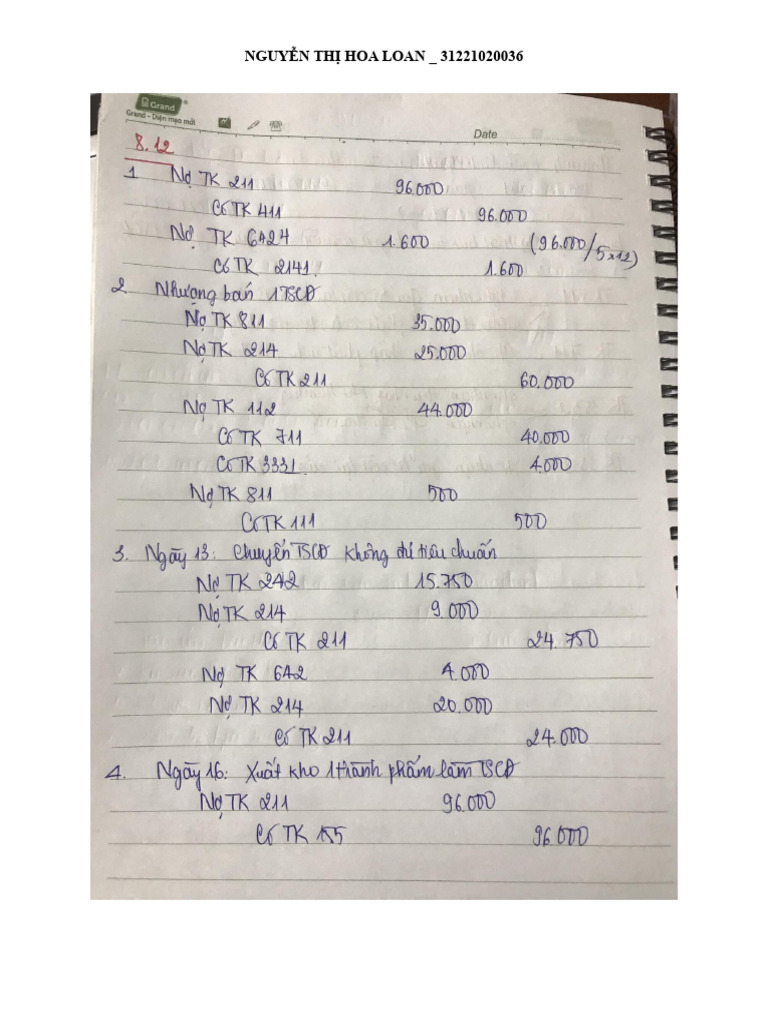 NGUYỄN THỊ HOA LOAN _ 31221020036
Grand
Grand - Diện mạo mới
Date
8.12
1 Nợ TK 211 96.000
Có TK 411 96.000
Nợ TK 6424 1.600 (96.000/5x12)
Có TK 2141. 1.600
2. Nhượng bán 1TSCĐ
Nợ TK 811 35.000
Nợ TK 214 25.000
Có TK 211 60.000
Nợ TK 112 44.000
Có TK 711 40.000
Có TK 3331. 4.000
Nợ TK 811 500
Có TK 111 500
3. Ngày 13: Chuyển TSCĐ không đủ tiêu chuẩn
Nợ TK 242 15.750
Nợ TK 214 9.000
Có TK 211 24.750
Nợ TK 642 4.000
Nợ TK 214 20.000
Có TK 211 24.000
4. Ngày 16: Xuất kho 1 thành phẩm làm TSCĐ
Nợ TK 211 96.000
Có TK 155 96.000